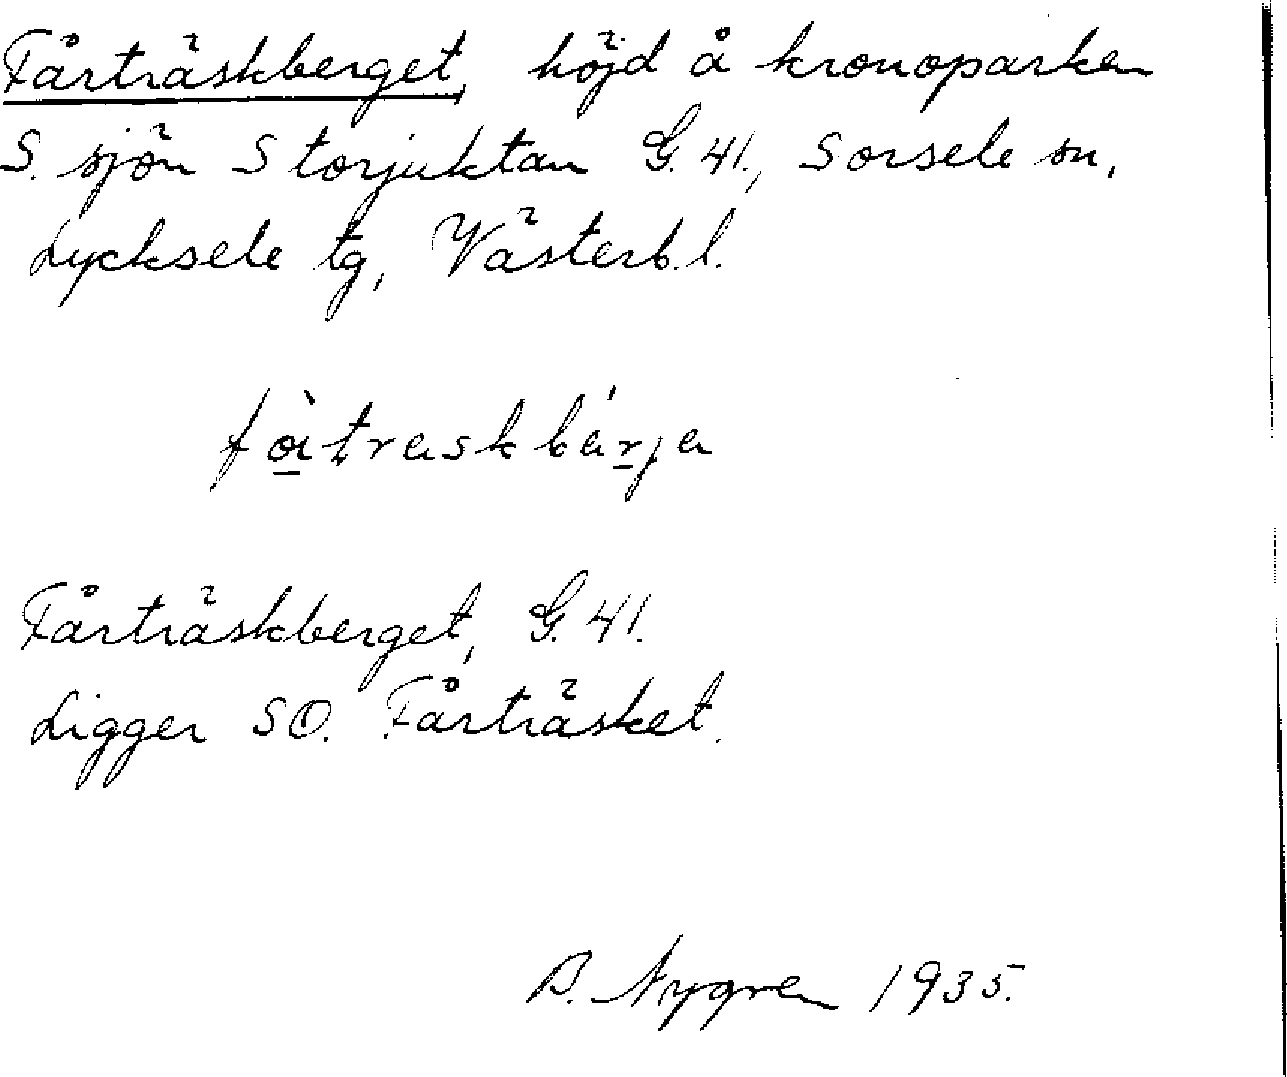 Fårträskberget, höjd å kronoparken
S. sjön Storjuktan G. 41., Sorsele sn,
Lycksele tg, Västerb. l.
Fårträskberget, G. 41.
Ligger SO. Fårträsket.
B. Nygren 1935.